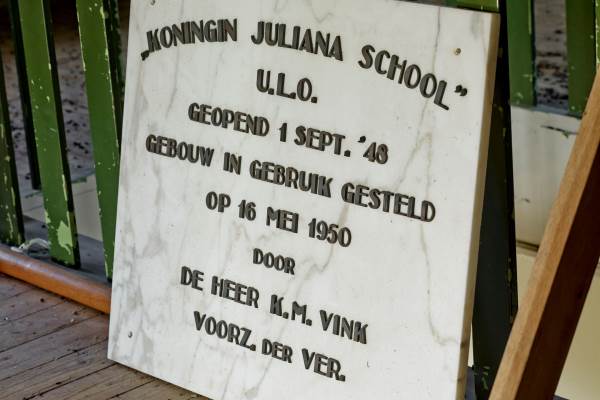 „KONINGIN JULIANA SCHOOL”
U.L.O.
GEOPEND 1 SEPT. '48
GEBOUW IN GEBRUIK GESTELD
OP 16 MEI 1950
DOOR
DE HEER K.M. VINK
VOORZ. DER VER.